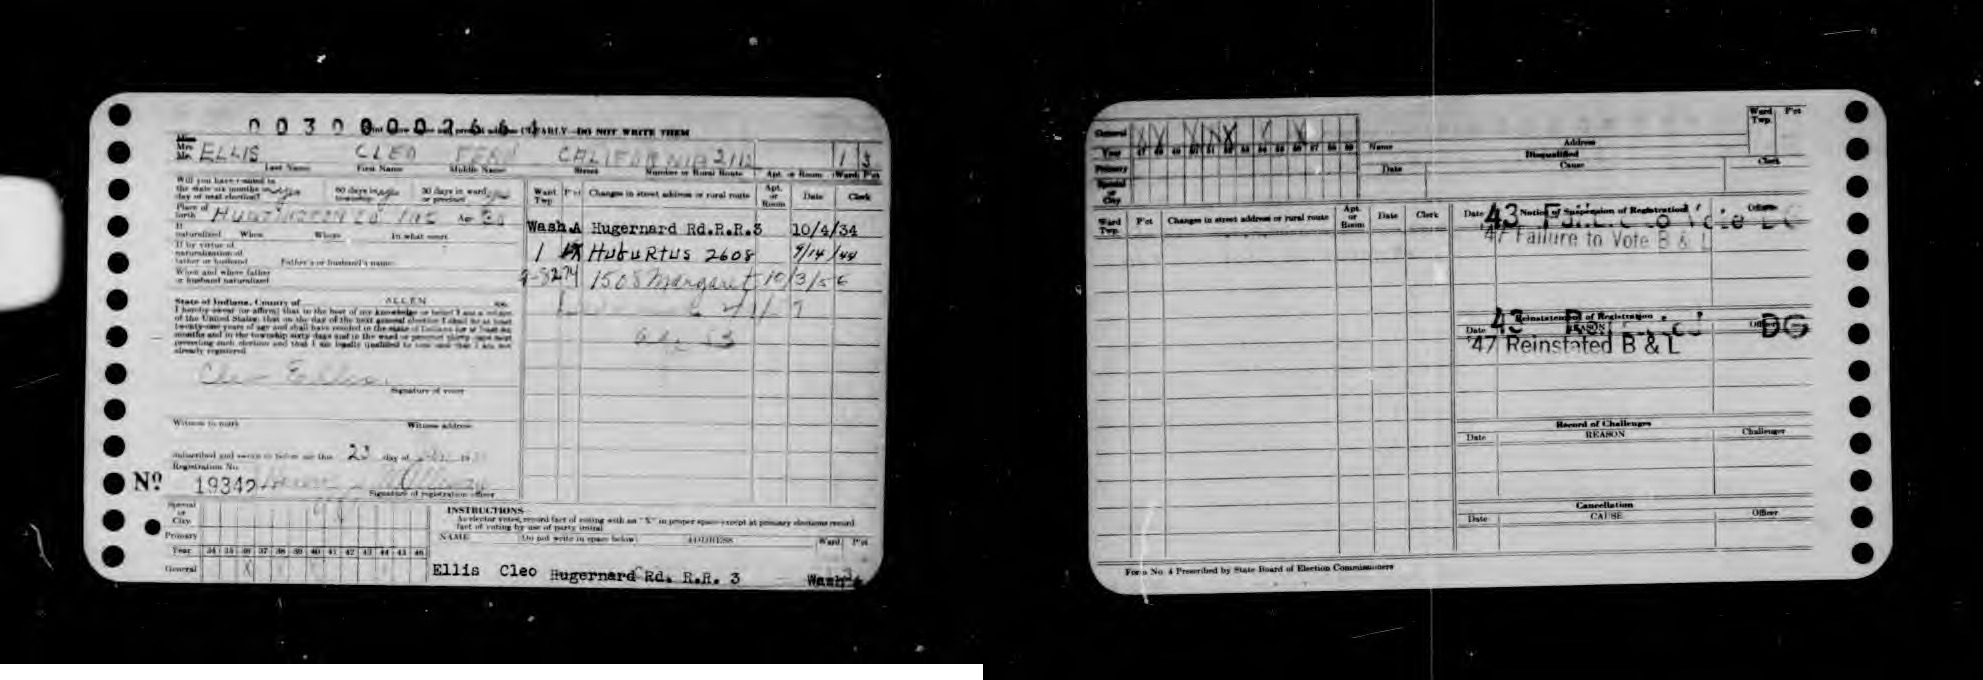 DO NOT WRITE THEM
Miss
Mrs.
Mr. ELLIS CLEO FERN CALIFORNIA 2112 1 3
Last Name First Name Middle Name Street Number or Rural Route Apt. or Room Ward Pct
Will you have resided in
the state six months on
day of next election? 60 days in township 30 days in ward or precinct
Place of birth Age 30
If naturalized When Where In what court
If by virtue of
naturalization of
father or husband Father's or husband's name
When and where father
or husband naturalized
Ward Twp. Pct Changes in street address or rural route Apt. or Room Date Clerk
Wash.A Hugernard Rd.R.R.3 10/4/34
1 Huburtus 2608 9/14/44
1508 Margaret 10/3/56
State of Indiana, County of ALLEN ss:
I hereby swear (or affirm) that to the best of my knowledge or belief I am a citizen
of the United States; that on the day of the next general election I shall be at least
twenty-one years of age and shall have resided in the state of Indiana for at least six
months and in the township sixty days and in the ward or precinct thirty days next
preceding such election and that I am legally qualified to vote and that I am not
already registered.
Cleo Ellis
Signature of voter
Witness to mark Witness address
Subscribed and sworn to before me this 23 day of
Registration No.
No 19342
Signature of registration officer
Special or City
Primary
Year 34 35 36 37 38 39 40 41 42 43 44 45 46
General
INSTRUCTIONS
As elector votes, record fact of voting with an "X" in proper space except at primary elections record
fact of voting by use of party initial
NAME Do not write in space below ADDRESS Ward Pct
Ellis Cleo Hugernard Rd. R.R. 3 Wash
General
Year 47 48 49 50 51 52 53 54 55 56 57 58 59
Primary
Special or City
Name Address
Ward Twp. Pct
Disqualified
Date Cause Clerk
Ward Twp. Pct Changes in street address or rural route Apt. or Room Date Clerk
Date Notice of Suspension of Registration Officer
43
'47 Failure to Vote B & L
Reinstatement of Registration
Date REASON
43 DG
'47 Reinstated B & L
Record of Challenges
Date REASON Challenger
Cancellation
Date CAUSE Officer
Form No. 4 Prescribed by State Board of Election Commissioners